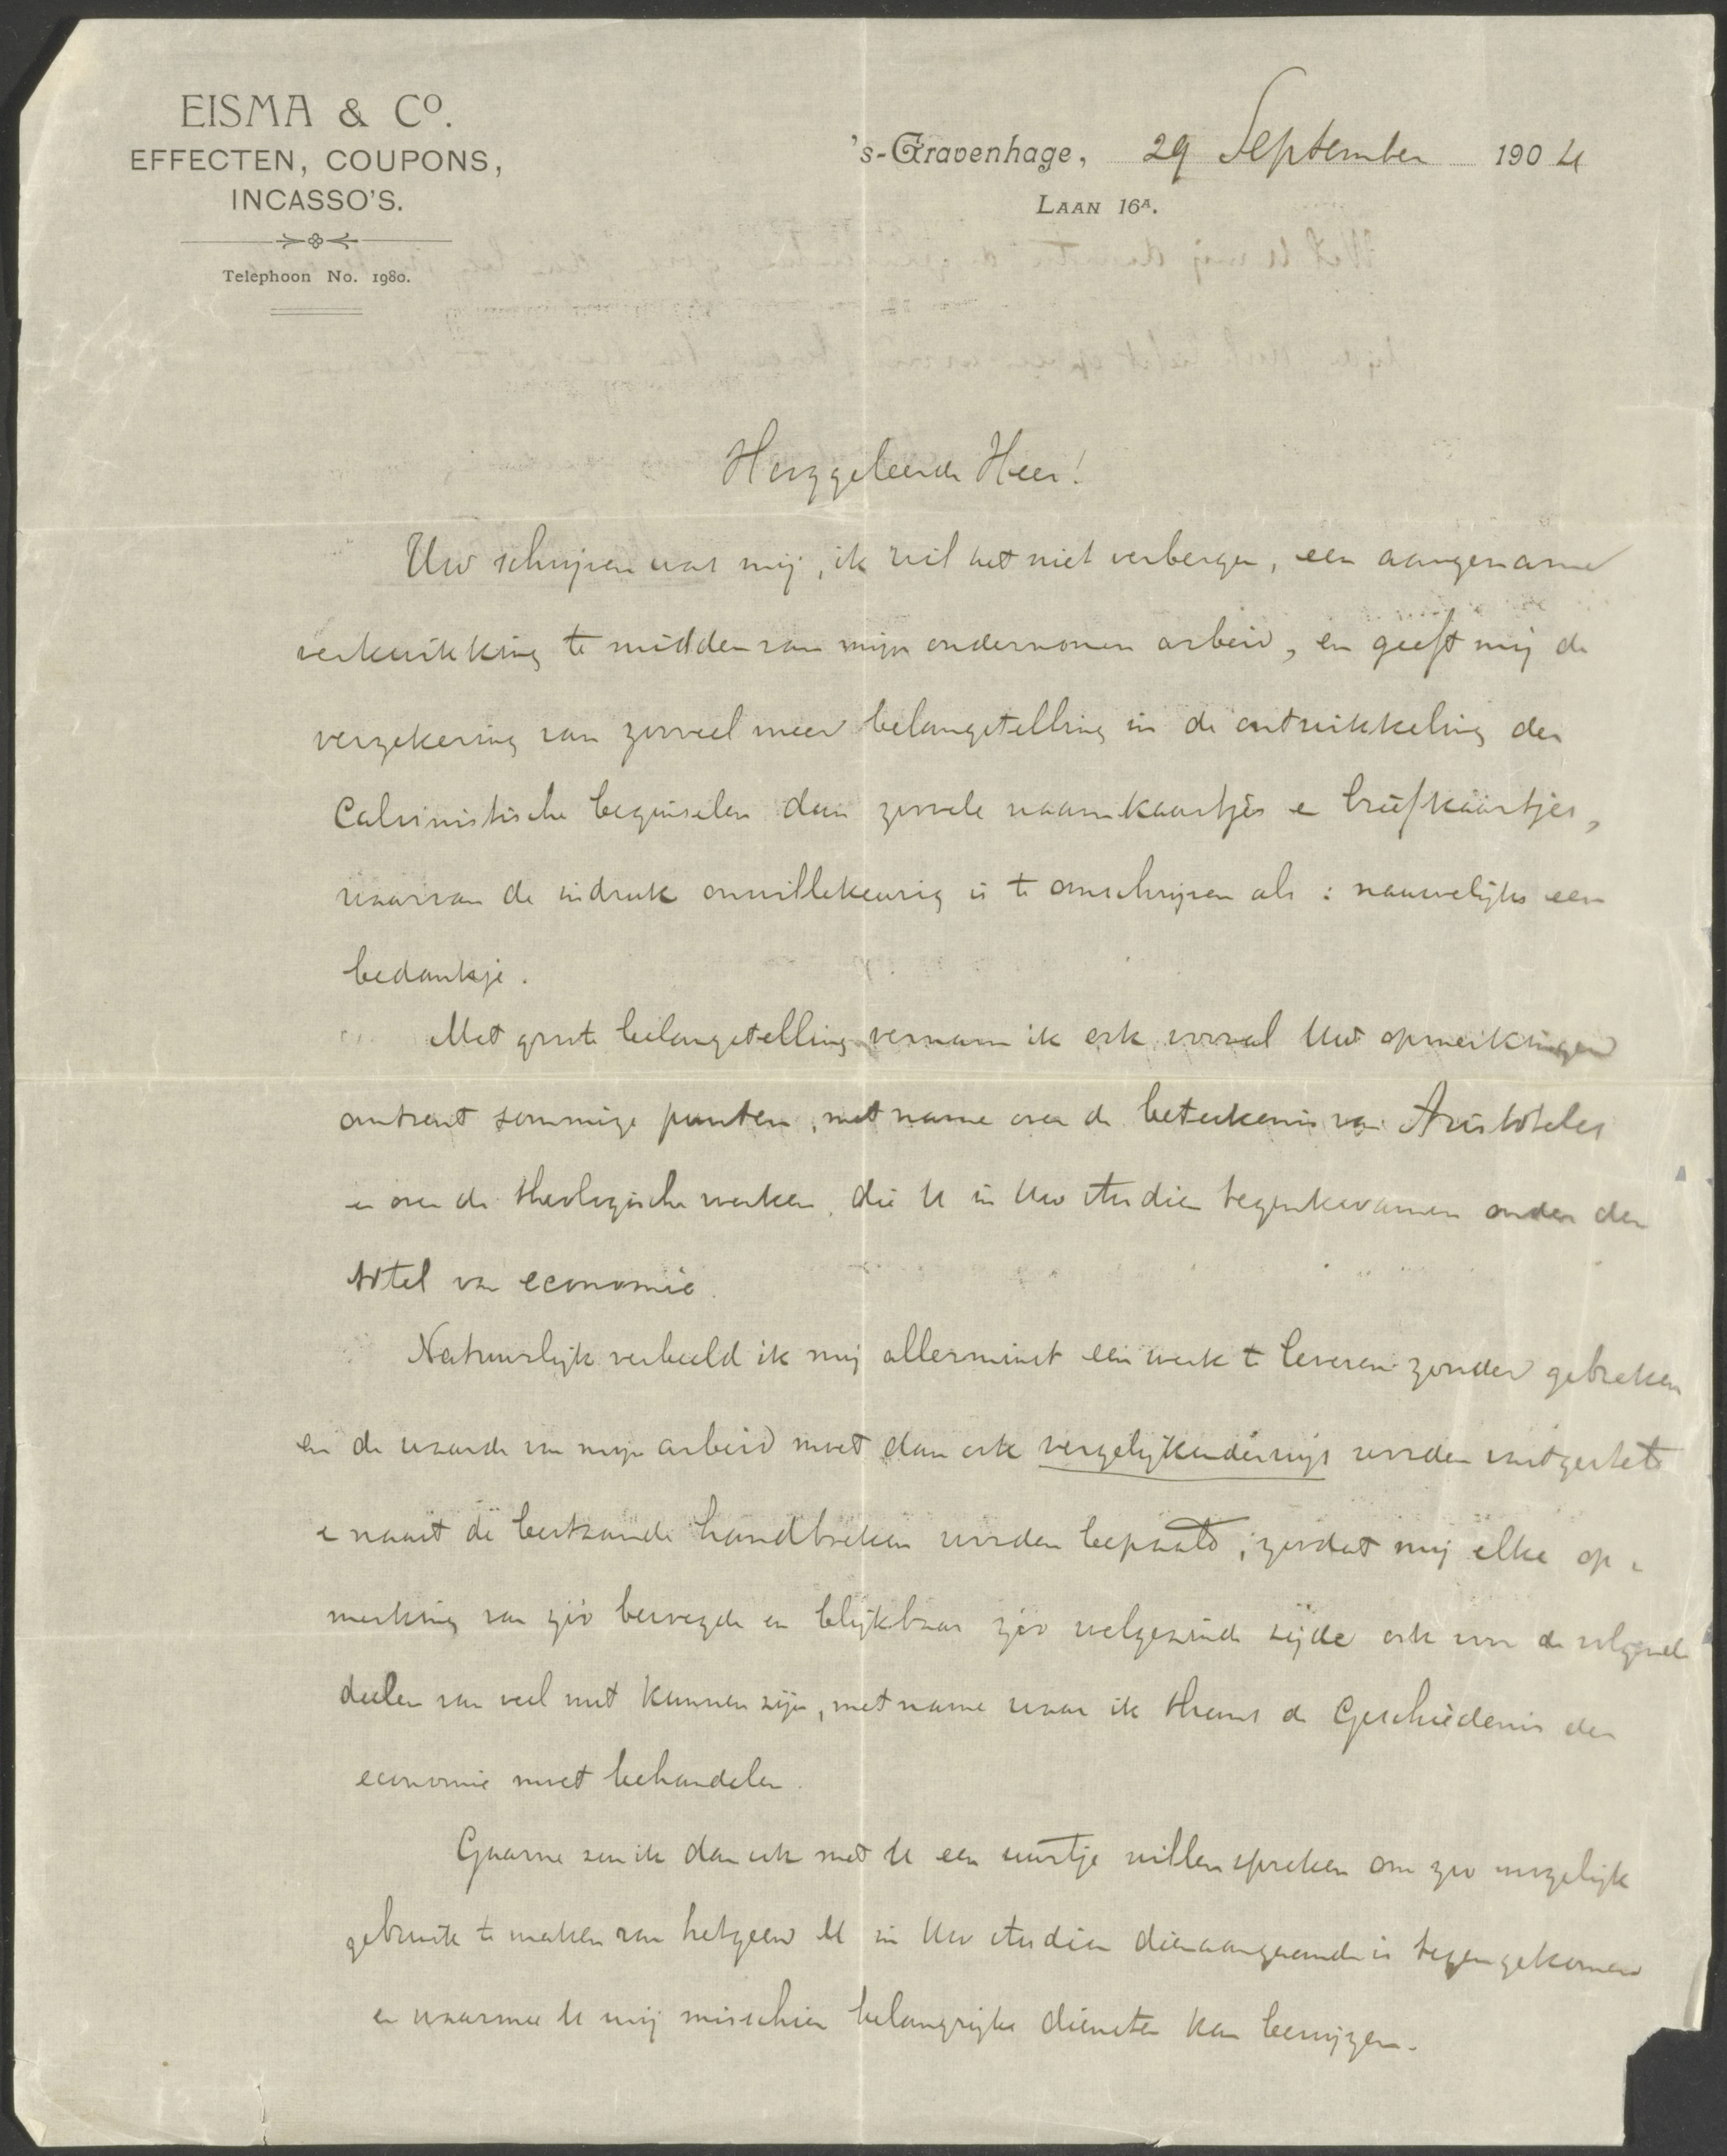 EISMA & Co.
EFFECTEN, COUPONS,
INCASSO'S.
Telephoon No. 1980.
's-Gravenhage, 29 September 1904
LAAN 16A.
Hooggeleerde Heer!
Uw schrijven was mij, ik wil het niet verbergen, een aangename
verkwikking te midden van mijn ondernomen arbeid, en geeft mij de
verzekering van zooveel meer belangstelling in de ontwikkeling der
Calvinistische beginselen dan zoovele naamkaartjes en briefkaartjes,
waarvan de indruk onwillekeurig is te omschrijven als: nauwelijks een
bedankje.
Met groote belangstelling vernam ik ook vooral Uw opmerkingen
omtrent sommige punten, met name over de beteekenis van Aristoteles
en over de theologische werken, die U in Uw studien tegenkwamen onder den
titel van economie.
Natuurlijk verbeeld ik mij allerminst een werk te leveren zonder gebreken
en de waarde van mijn arbeid moet dan ook vergelijkenderwijs worden vastgesteld
en naast de bestaande handboeken worden bepaald, zoodat mij elke op-
merking van zoo bevoegde en blijkbaar zoo welgezinde zijde ook voor de volgende
deelen van veel nut kunnen zijn, met name waar ik thans de Geschiedenis der
economie moet behandelen.
Gaarne zou ik dan ook met U een uurtje willen spreken om zoo mogelijk
gebruik te maken van hetgeen U in Uw studien dienaangaande is tegengekomen
en waarmee U mij misschien belangrijke diensten kan bewijzen.